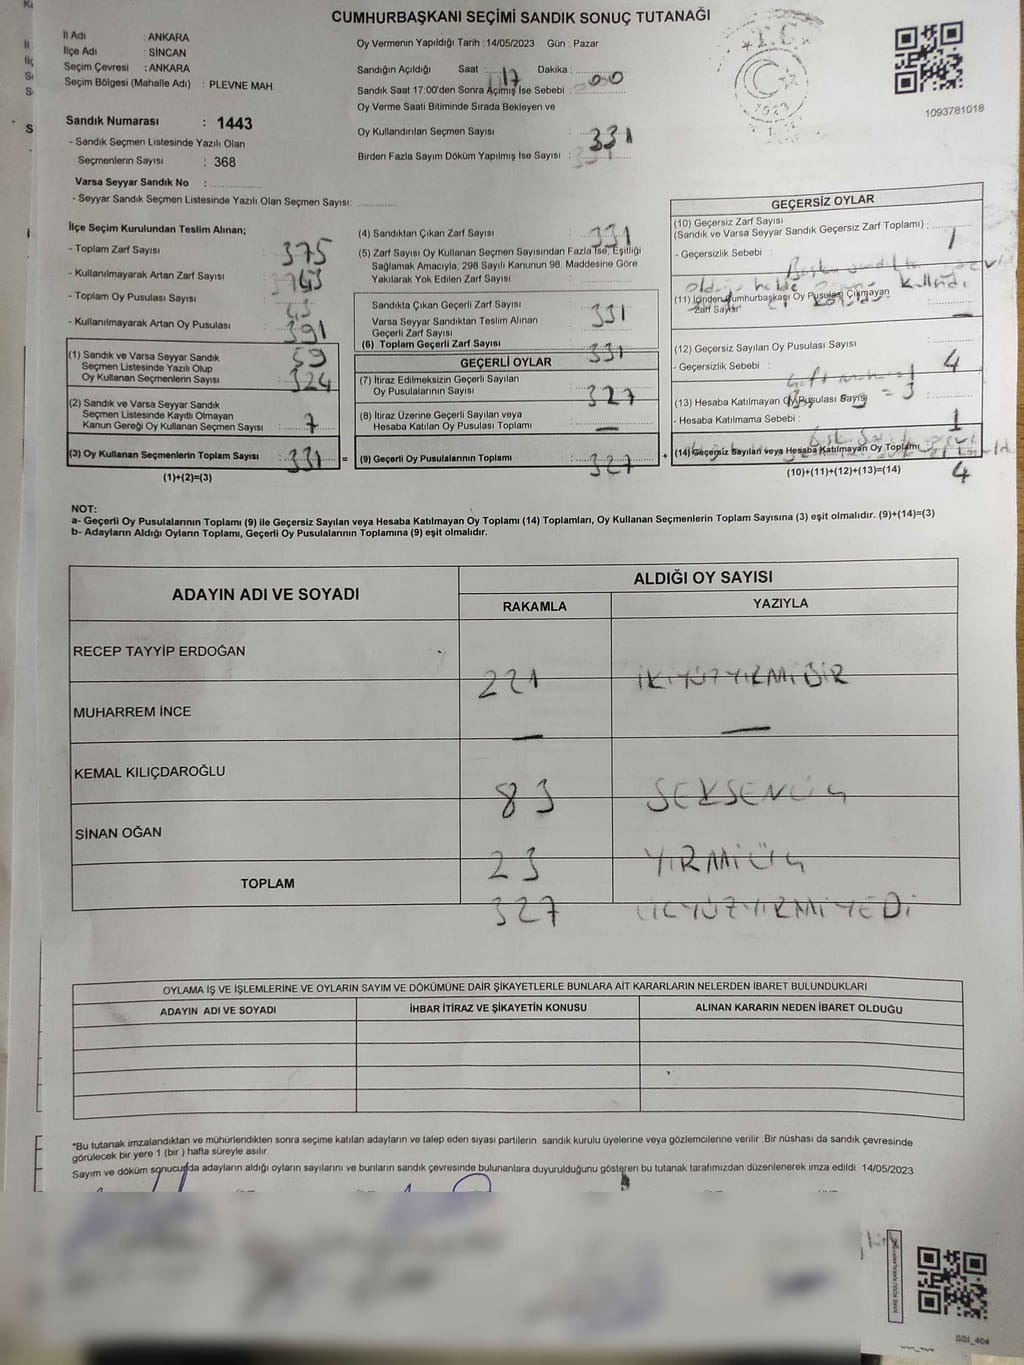 CUMHURBAŞKANI SEÇİMİ SANDIK SONUÇ TUTANAĞI
İl Adı : ANKARA
İlçe Adı : SİNCAN
Seçim Çevresi : ANKARA
Seçim Bölgesi (Mahalle Adı) : PLEVNE MAH.
Sandık Numarası : 1443
- Sandık Seçmen Listesinde Yazılı Olan
Seçmenlerin Sayısı : 368
Varsa Seyyar Sandık No :
- Seyyar Sandık Seçmen Listesinde Yazılı Olan Seçmen Sayısı:
Oy Vermenin Yapıldığı Tarih : 14/05/2023 Gün : Pazar
Sandığın Açıldığı Saat : 17 Dakika : 00
Sandık Saat 17:00'den Sonra Açılmış İse Sebebi :
Oy Verme Saati Bitiminde Sırada Bekleyen ve
Oy Kullandırılan Seçmen Sayısı : 331
Birden Fazla Sayım Döküm Yapılmış İse Sayısı :
T.C.
2023
1093781018
İlçe Seçim Kurulundan Teslim Alınan;
- Toplam Zarf Sayısı : 375
- Kullanılmayarak Artan Zarf Sayısı : 43
- Toplam Oy Pusulası Sayısı :
- Kullanılmayarak Artan Oy Pusulası : 391
59
(1) Sandık ve Varsa Seyyar Sandık
Seçmen Listesinde Yazılı Olup
Oy Kullanan Seçmenlerin Sayısı : 324
(2) Sandık ve Varsa Seyyar Sandık
Seçmen Listesinde Kayıtlı Olmayan
Kanun Gereği Oy Kullanan Seçmen Sayısı : 7
(3) Oy Kullanan Seçmenlerin Toplam Sayısı : 331 =
(1)+(2)=(3)
(4) Sandıktan Çıkan Zarf Sayısı : 331
(5) Zarf Sayısı Oy Kullanan Seçmen Sayısından Fazla İse, Eşitliği
Sağlamak Amacıyla, 298 Sayılı Kanunun 98. Maddesine Göre
Yakılarak Yok Edilen Zarf Sayısı :
Sandıkta Çıkan Geçerli Zarf Sayısı : 331
Varsa Seyyar Sandıktan Teslim Alınan
Geçerli Zarf Sayısı :
(6) Toplam Geçerli Zarf Sayısı : 331
GEÇERLİ OYLAR
(7) İtiraz Edilmeksizin Geçerli Sayılan
Oy Pusulalarının Sayısı : 327
(8) İtiraz Üzerine Geçerli Sayılan veya
Hesaba Katılan Oy Pusulası Toplamı : —
(9) Geçerli Oy Pusulalarının Toplamı : 327 +
GEÇERSİZ OYLAR
(10) Geçersiz Zarf Sayısı
(Sandık ve Varsa Seyyar Sandık Geçersiz Zarf Toplamı) : 1
- Geçersizlik Sebebi :
(11) İçinden Cumhurbaşkanı Oy Pusulası Çıkmayan
Zarf Sayısı : —
(12) Geçersiz Sayılan Oy Pusulası Sayısı : 4
- Geçersizlik Sebebi :
= 3
(13) Hesaba Katılmayan Oy Pusulası Sayısı :
- Hesaba Katılmama Sebebi : 1
(14) Geçersiz Sayılan veya Hesaba Katılmayan Oy Toplamı
(10)+(11)+(12)+(13)=(14) 4
NOT:
a- Geçerli Oy Pusulalarının Toplamı (9) ile Geçersiz Sayılan veya Hesaba Katılmayan Oy Toplamı (14) Toplamları, Oy Kullanan Seçmenlerin Toplam Sayısına (3) eşit olmalıdır. (9)+(14)=(3)
b- Adayların Aldığı Oyların Toplamı, Geçerli Oy Pusulalarının Toplamına (9) eşit olmalıdır.
ADAYIN ADI VE SOYADI
ALDIĞI OY SAYISI
RAKAMLA YAZIYLA
RECEP TAYYİP ERDOĞAN 221 İKİYÜZYİRMİBİR
MUHARREM İNCE — —
KEMAL KILIÇDAROĞLU 83 SEKSENÜÇ
SİNAN OĞAN 23 YİRMİÜÇ
TOPLAM 327 ÜÇYÜZYİRMİYEDİ
OYLAMA İŞ VE İŞLEMLERİNE VE OYLARIN SAYIM VE DÖKÜMÜNE DAİR ŞİKAYETLERLE BUNLARA AİT KARARLARIN NELERDEN İBARET BULUNDUKLARI
ADAYIN ADI VE SOYADI İHBAR İTİRAZ VE ŞİKAYETİN KONUSU ALINAN KARARIN NEDEN İBARET OLDUĞU
*Bu tutanak imzalandıktan ve mühürlendikten sonra seçime katılan adayların ve talep eden siyasi partilerin sandık kurulu üyelerine veya gözlemcilerine verilir. Bir nüshası da sandık çevresinde
görülecek bir yere 1 (bir) hafta süreyle asılır.
Sayım ve döküm sonucunda adayların aldığı oyların sayılarını ve bunların sandık çevresinde bulunanlara duyurulduğunu gösteren bu tutanak tarafımızdan düzenlenerek imza edildi 14/05/2023
SBI_404